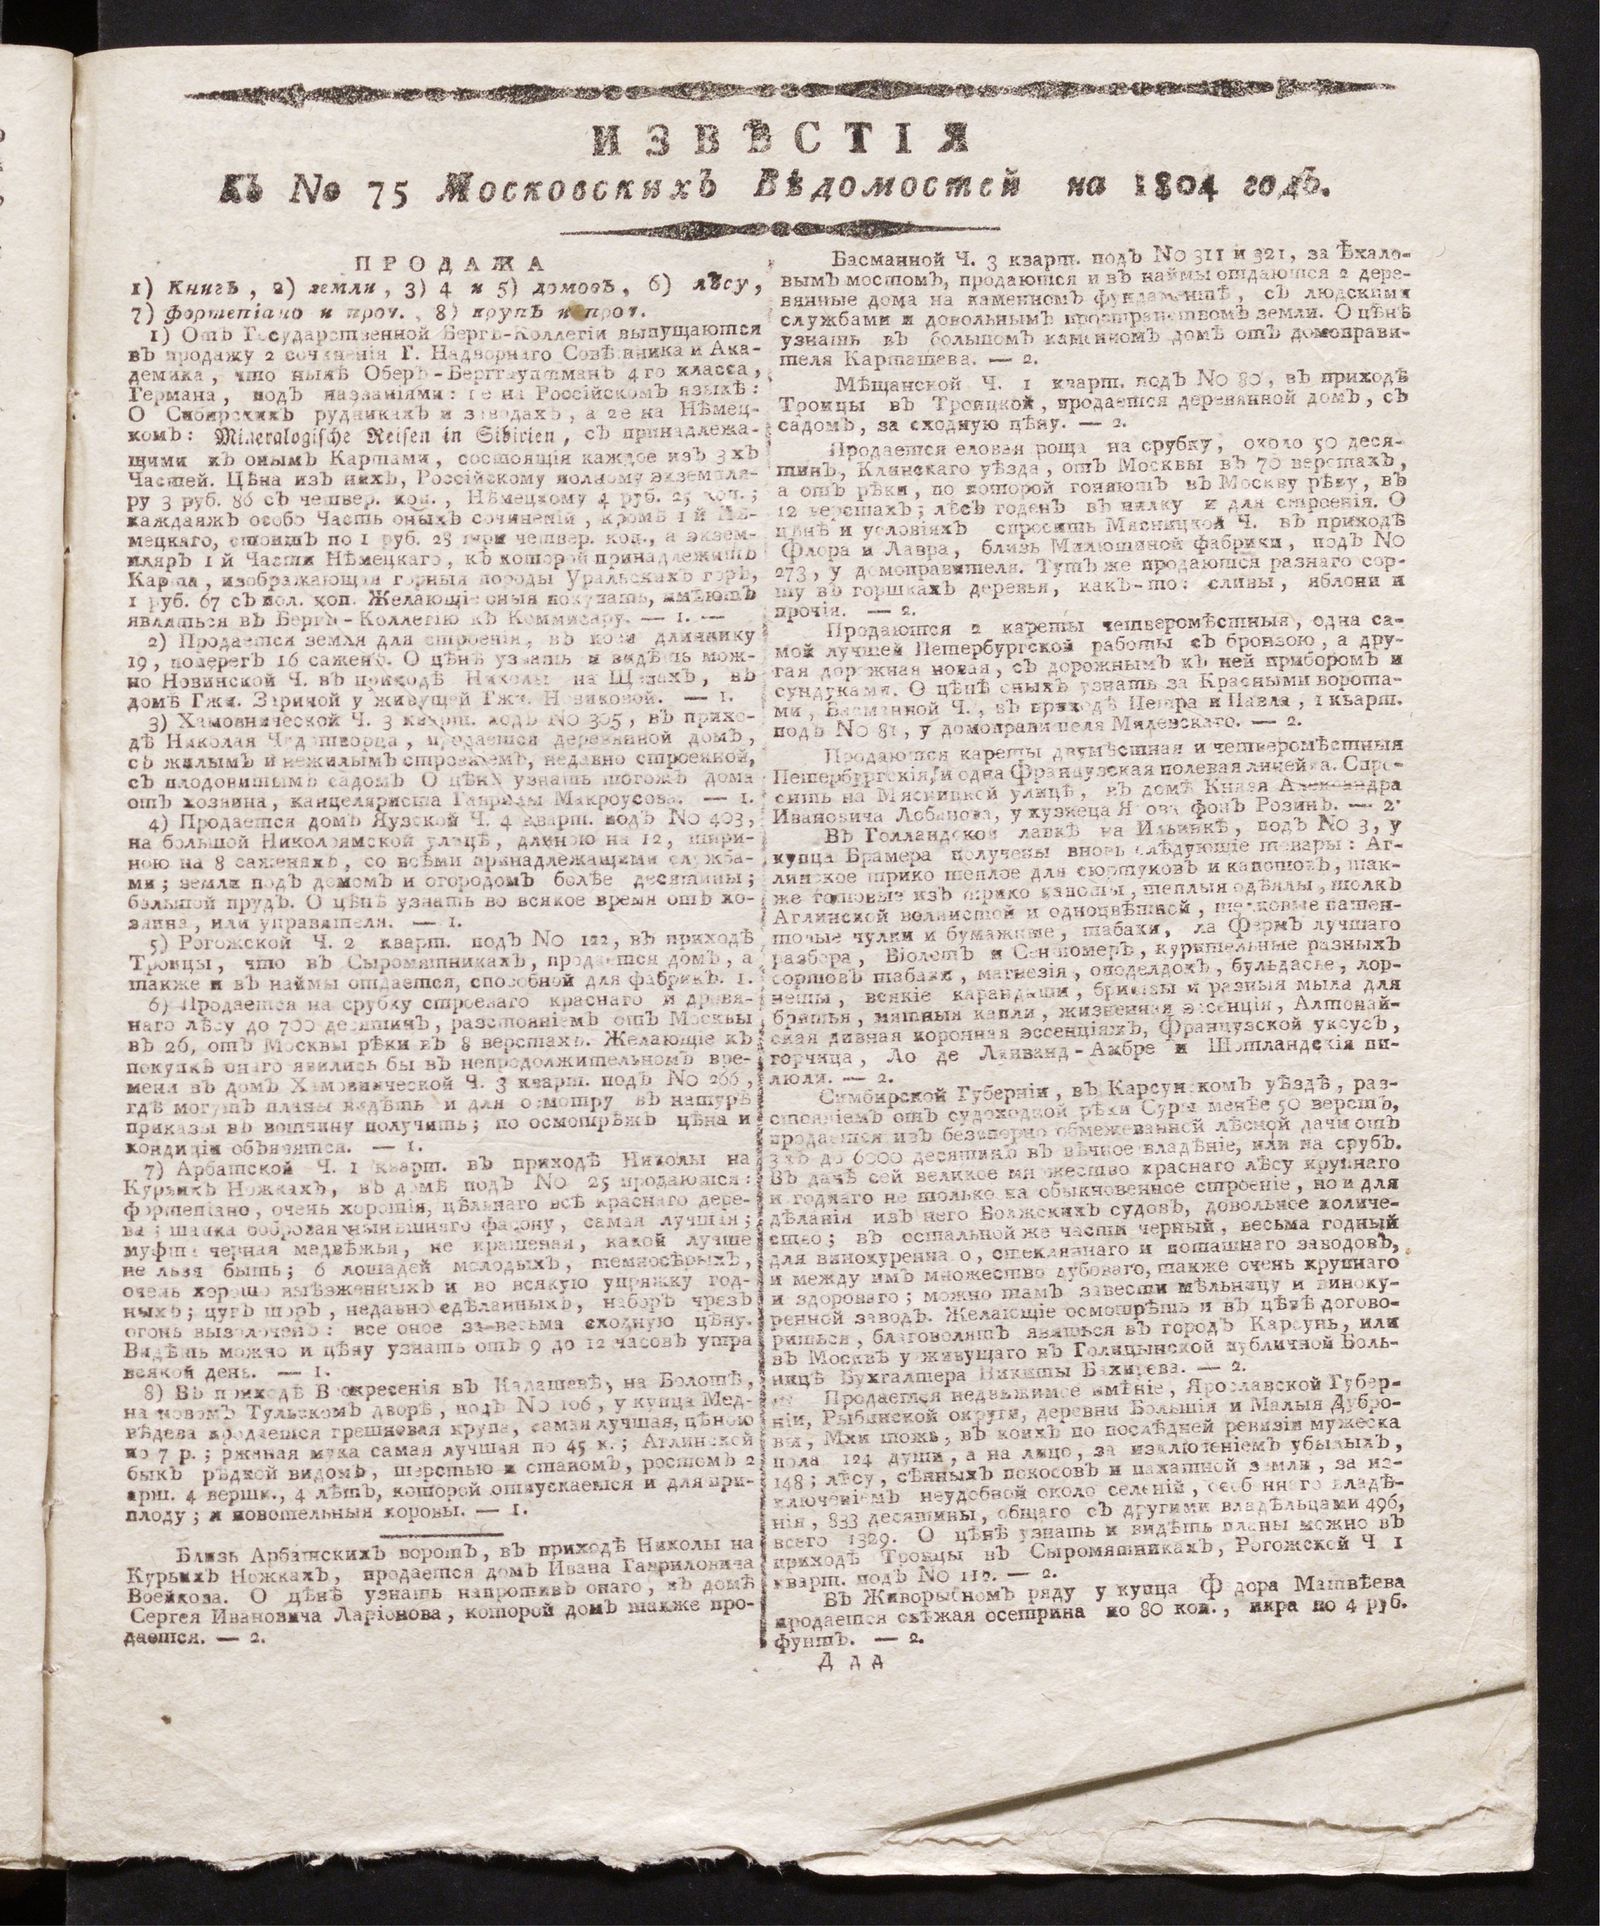 ИЗВѢСТІЯ
Къ No 75 Московскихъ Вѣдомостей на 1804 годъ.
ПРОДАЖА
1) Книгъ, 2) земли, 3) 4 и 5) домовъ, 6) лѣсу,
7) фортепіано и проч., 8) крупъ и проч.
1) Отъ Государственной Бергъ-Коллегіи выпущаются
въ продажу 2 сочиненія Г. Надворнаго Совѣтника и Ака-
демика, что нынѣ Оберъ-Бергтауптманъ 4 го класса,
Германа, подъ названіями: 1е на Россійскомъ языкѣ:
О Сибирскихъ рудникахъ и заводахъ, а 2е на Нѣмец-
комъ: Mineralogische Reisen in Sibirien, съ принадлежа-
щими къ онымъ Картами, состоящія каждое изъ 3хъ
Частей. Цѣна изъ нихъ, Россійскому полному экземпля-
ру 3 руб. 86 съ четвер. коп., Нѣмецкому 4 руб. 25 коп.;
каждаяжъ особо Часть оныхъ сочиненій, кромѣ 1 й Нѣ-
мецкаго, стоитъ по 1 руб. 28 три четвер. коп., а экзем-
пляръ 1 й Части Нѣмецкаго, къ которой принадлежитъ
Карта, изображающая горныя породы Уральскихъ горъ,
1 руб. 67 съ пол. коп. Желающіе оныя покупать, имѣютъ
являться въ Бергъ-Коллегію къ Коммисару. — 1. —
2) Продается земля для строенія, въ коей длиннику
19, поперегъ 16 саженъ. О цѣнѣ узнать и видѣть мож-
но Новинской Ч. въ приходѣ Николы на Щепахъ, въ
домѣ Гжи. Зериной у живущей Гжи. Новиковой. — 1.
3) Хамовнической Ч. 3 кварт. подъ No 305, въ прихо-
дѣ Николая Чудотворца, продается деревянной домъ,
съ жилымъ и нежилымъ строеніемъ, недавно строенной,
съ плодовитымъ садомъ О цѣнѣ узнать тогожъ дома
отъ хозяина, канцеляриста Гаврилы Макроусова. — 1.
4) Продается домъ Яузской Ч. 4 кварт. подъ No 403,
на большой Николоямской улицѣ, длиною на 12, шири-
ною на 8 саженяхъ, со всѣми принадлежащими служба-
ми; земли подъ домомъ и огородомъ болѣе десятины;
большой прудъ. О цѣнѣ узнать во всякое время отъ хо-
зяина, или управителя. — 1.
5) Рогожской Ч. 2 кварт. подъ No 122, въ приходѣ
Троицы, что въ Сыромятникахъ, продается домъ, а
также и въ наймы отдается, способной для фабрикъ. 1.
6) Продается на срубку строеваго краснаго и дровя-
наго лѣсу до 700 десятинъ, разстояніемъ отъ Москвы
въ 26, отъ Москвы рѣки въ 8 верстахъ. Желающіе къ
покупкѣ онаго явились бы въ непродолжительномъ вре-
мени въ домъ Хамовнической Ч. 3 кварт. подъ No 266,
гдѣ могутъ планы видѣть и для осмотру въ натурѣ
приказы въ вотчину получить; по осмотрѣжъ цѣна и
кондиціи объявятся. — 1.
7) Арбатской Ч. 1 кварт. въ приходѣ Николы на
Курьихъ Ножкахъ, въ домѣ подъ No 25 продаются:
фортепіано, очень хорошія, цѣльнаго всѣ краснаго дере-
ва; шапка бобровая нынѣшняго фасону, самая лучшая;
муфта черная медвѣжья, не крашеная, какой лучше
не льзя быть; 6 лошадей молодыхъ, темносѣрыхъ,
очень хорошо выѣзженныхъ и во всякую упряжку год-
ныхъ; цугъ шоръ, недавно сдѣланныхъ, наборъ чрезъ
огонь вызолоченъ: все оное за весьма сходную цѣну.
Видѣть можно и цѣну узнать отъ 9 до 12 часовъ утра
всякой день. — 1.
8) Въ приходѣ Воскресенія въ Кадашевѣ, на Болотѣ,
на новомъ Тульскомъ дворѣ, подъ No 106, у купца Мед-
вѣдева продается грешневая крупа, самая лучшая, цѣною
по 7 р.; ржаная мука самая лучшая по 45 к.; Аглинской
быкъ рѣдкой видомъ, шерстью и станомъ, ростомъ 2
арш. 4 вершк., 4 лѣтъ, которой отпускается и для при-
плоду; и новотельныя коровы. — 1.
Близь Арбатскихъ воротъ, въ приходѣ Николы на
Курьихъ Ножкахъ, продается домъ Ивана Гавриловича
Воейкова. О цѣнѣ узнать напротивъ онаго, въ домѣ
Сергея Ивановича Ларіонова, которой домъ также про-
дается. — 2.
Басманной Ч. 3 кварт. подъ No 311 и 321, за Ѣхало-
вымъ мостомъ, продаются и въ наймы отдаются 2 дере-
вянные дома на каменномъ фундаментѣ, съ людскими
службами и довольнымъ пространствомъ земли. О цѣнѣ
узнать въ большомъ каменномъ домѣ отъ домоправи-
теля Карташева. — 2.
Мѣщанской Ч. 1 кварт. подъ No 80, въ приходѣ
Троицы въ Троицкой, продается деревянной домъ, съ
садомъ, за сходную цѣну. — 2.
Продается еловая роща на срубку, около 50 деся-
тинъ, Клинскаго уѣзда, отъ Москвы въ 70 верстахъ,
а отъ рѣки, по которой гоняютъ въ Москву рѣку, въ
12 верстахъ; лѣсъ годенъ въ пилку и для строенія. О
цѣнѣ и условіяхъ спросить Мясницкой Ч. въ приходѣ
Флора и Лавра, близь Милютиной фабрики, подъ No
273, у домоправителя. Тутъ же продаются разнаго сор-
ту въ горшкахъ деревья, какъ-то: сливы, яблони и
прочія. — 2.
Продаются 2 кареты четверомѣстныя, одна са-
мой лучшей Петербургской работы съ бронзою, а дру-
гая дорожная новая, съ дорожнымъ къ ней приборомъ и
сундуками. О цѣнѣ оныхъ узнать за Красными ворота-
ми, Басманной Ч., въ приходѣ Петра и Павла, 1 кварт.
подъ No 81, у домоправителя Милевскаго. — 2.
Продаются кареты двумѣстная и четверомѣстныя
Петербургскія, и одна Французская полевая линейка. Спро-
сить на Мясницкой улицѣ, въ домѣ Князя Александра
Ивановича Лобанова, у кузнеца Якова фонъ Розинъ. — 2.
Въ Голландской лавкѣ на Ильинкѣ, подъ No 3, у
купца Брамера получены вновь слѣдующіе товары: Аг-
линское трико теплое для сюртуковъ и капотовъ, так-
же готовые изъ трико капоты, теплыя одѣялы, шолкъ
Аглинской волнистой и одноцвѣтной, шелковые патен-
товые чулки и бумажные, табаки, ла Фермъ лучшаго
разбора, Віолетъ и Сентомеръ, курительные разныхъ
сортовъ табаки, магнезія, оподелдокъ, бульдасье, лор-
неты, всякіе карандаши, бритвы и разныя мыла для
бритья, мятныя капли, жизненная эссенція, Алтонай-
ская дивная коронная эссенціяжъ, Французской уксусъ,
горчица, Ло де Лаиванд-Амбре и Шотландскія пи-
люли. — 2.
Симбирской Губерніи, въ Карсунскомъ уѣздѣ, раз-
стояніемъ отъ судоходной рѣки Суры менѣе 50 верстъ,
продается изъ безспорно обмежеванной лѣсной дачи отъ
3 хъ до 6000 десятинъ въ вѣчное владѣніе, или на срубъ.
Въ дачѣ сей великое множество краснаго лѣсу крупнаго
и годнаго не только на обыкновенное строеніе, но и для
дѣланія изъ него Волжскихъ судовъ, довольное количе-
ство; въ остальной же части черный, весьма годный
для винокуренна о, стекляннаго и поташнаго заводовъ,
и между имъ множество дубоваго, также очень крупнаго
и здороваго; можно тамъ завести мѣльницу и виноку-
ренной заводъ. Желающіе осмотрѣть и въ цѣнѣ догово-
риться, благоволятъ явиться въ городъ Карсунь, или
въ Москвѣ у живущаго въ Голицынской публичной Боль-
ницѣ Бухгалтера Никиты Бахирева. — 2.
Продается недвижимое имѣніе, Ярославской Губер-
ніи, Рыбинской округи, деревни Большія и Малыя Дубро-
вы, Мхи тожъ, въ коихъ по послѣдней ревизіи мужеска
пола 124 души, а на лицо, за изключеніемъ убылыхъ,
148; лѣсу, сѣнныхъ покосовъ и пахатной земли, за ис-
ключеніемъ неудобной около селеній, особ ннаго владѣ-
нія, 833 десятины, общаго съ другими владѣльцами 496,
всего 1329. О цѣнѣ узнать и видѣть планы можно въ
приходѣ Троицы въ Сыромятникахъ, Рогожской Ч 1
кварт. подъ No 112. — 2.
Въ Живорыбномъ ряду у купца Ф дора Матвѣева
продается свѣжая осетрина по 80 коп., икра по 4 руб.
фунтъ. — 2.
Д д д